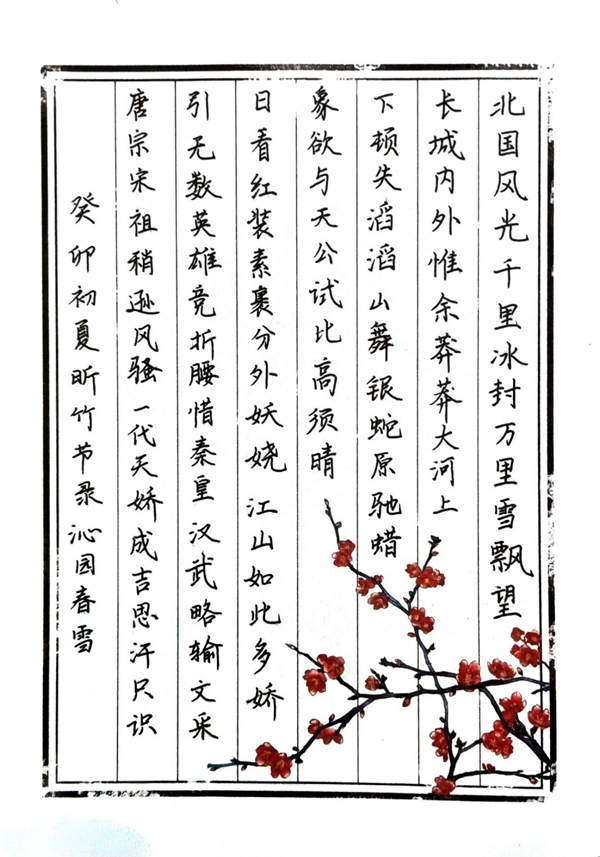 北国风光千里冰封万里雪飘望
长城内外惟余莽莽大河上
下顿失滔滔山舞银蛇原驰蜡
象欲与天公试比高须晴
日看红装素裹分外妖娆江山如此多娇
引无数英雄竞折腰惜秦皇汉武略输文采
唐宗宋祖稍逊风骚一代天娇成吉思汗只识
癸卯初夏昕竹节录沁园春雪